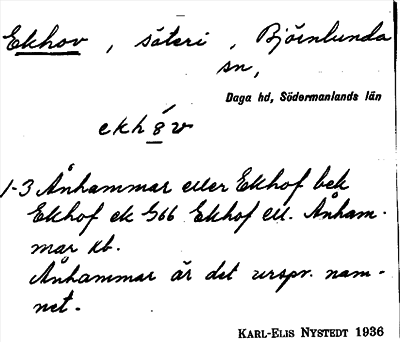 Ekhov, säteri, Björnlunda
sn,
Daga hd, Södermanlands län
ekh8́v
1-3 Ånhammar eller Ekhof bek
Ekhof ek G66 Ekhof ell. Ånham-
mar kb.
Ånhammar är det urspr. nam-
net.
KARL-ELIS NYSTEDT 1936